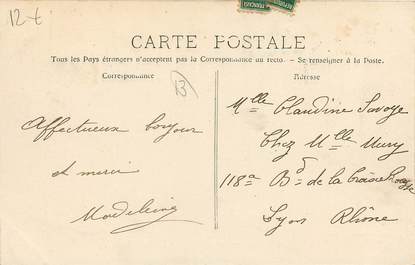 12-t
CARTE POSTALE
Tous les Pays étrangers n'acceptent pas la Correspondance au recto. — Se renseigner à la Poste.
Correspondance
Adresse
B
Affectueux bonjour
et merci
Madeleine
Mlle Claudine Savoye
Chez Mlle Mury
118a Bd de la Croix Rousse
Lyon Rhône